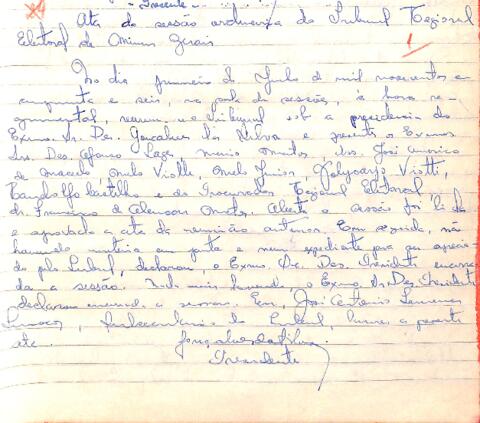 Ata da sessão ordinária do Tribunal Regional
Eleitoral de Minas Gerais
No dia primeiro de Julho de mil novecentos e
cinquenta e seis, na sala de sessões, à hora re-
gimental, reuniu-se o Tribunal sob a presidencia do
Exmo. Sr. Des. Gonçalves da Silva e presentes os Exmos.
Srs. Des. Afonso Lage, dos José Americo
de Macedo, Melo Viotti, Melo Junior,
e do Procurador Regional Eleitoral,
dr. Francisco de Motta. Aberta a sessão foi lida
e aprovada a ata da reunião anterior. Em seguida, não
havendo matéria em pauta e nem expediente para ser aprecia-
do pelo Tribunal, declarou, o Exmo. Sr. Des. Presidente encerra-
da a sessão. Nada mais havendo, o Exmo. Sr. Des. Presidente
declarou encerrada a sessão. Eu, José
do Tribunal, lavrei a presente
ata. Gonçalves da Silva
Presidente